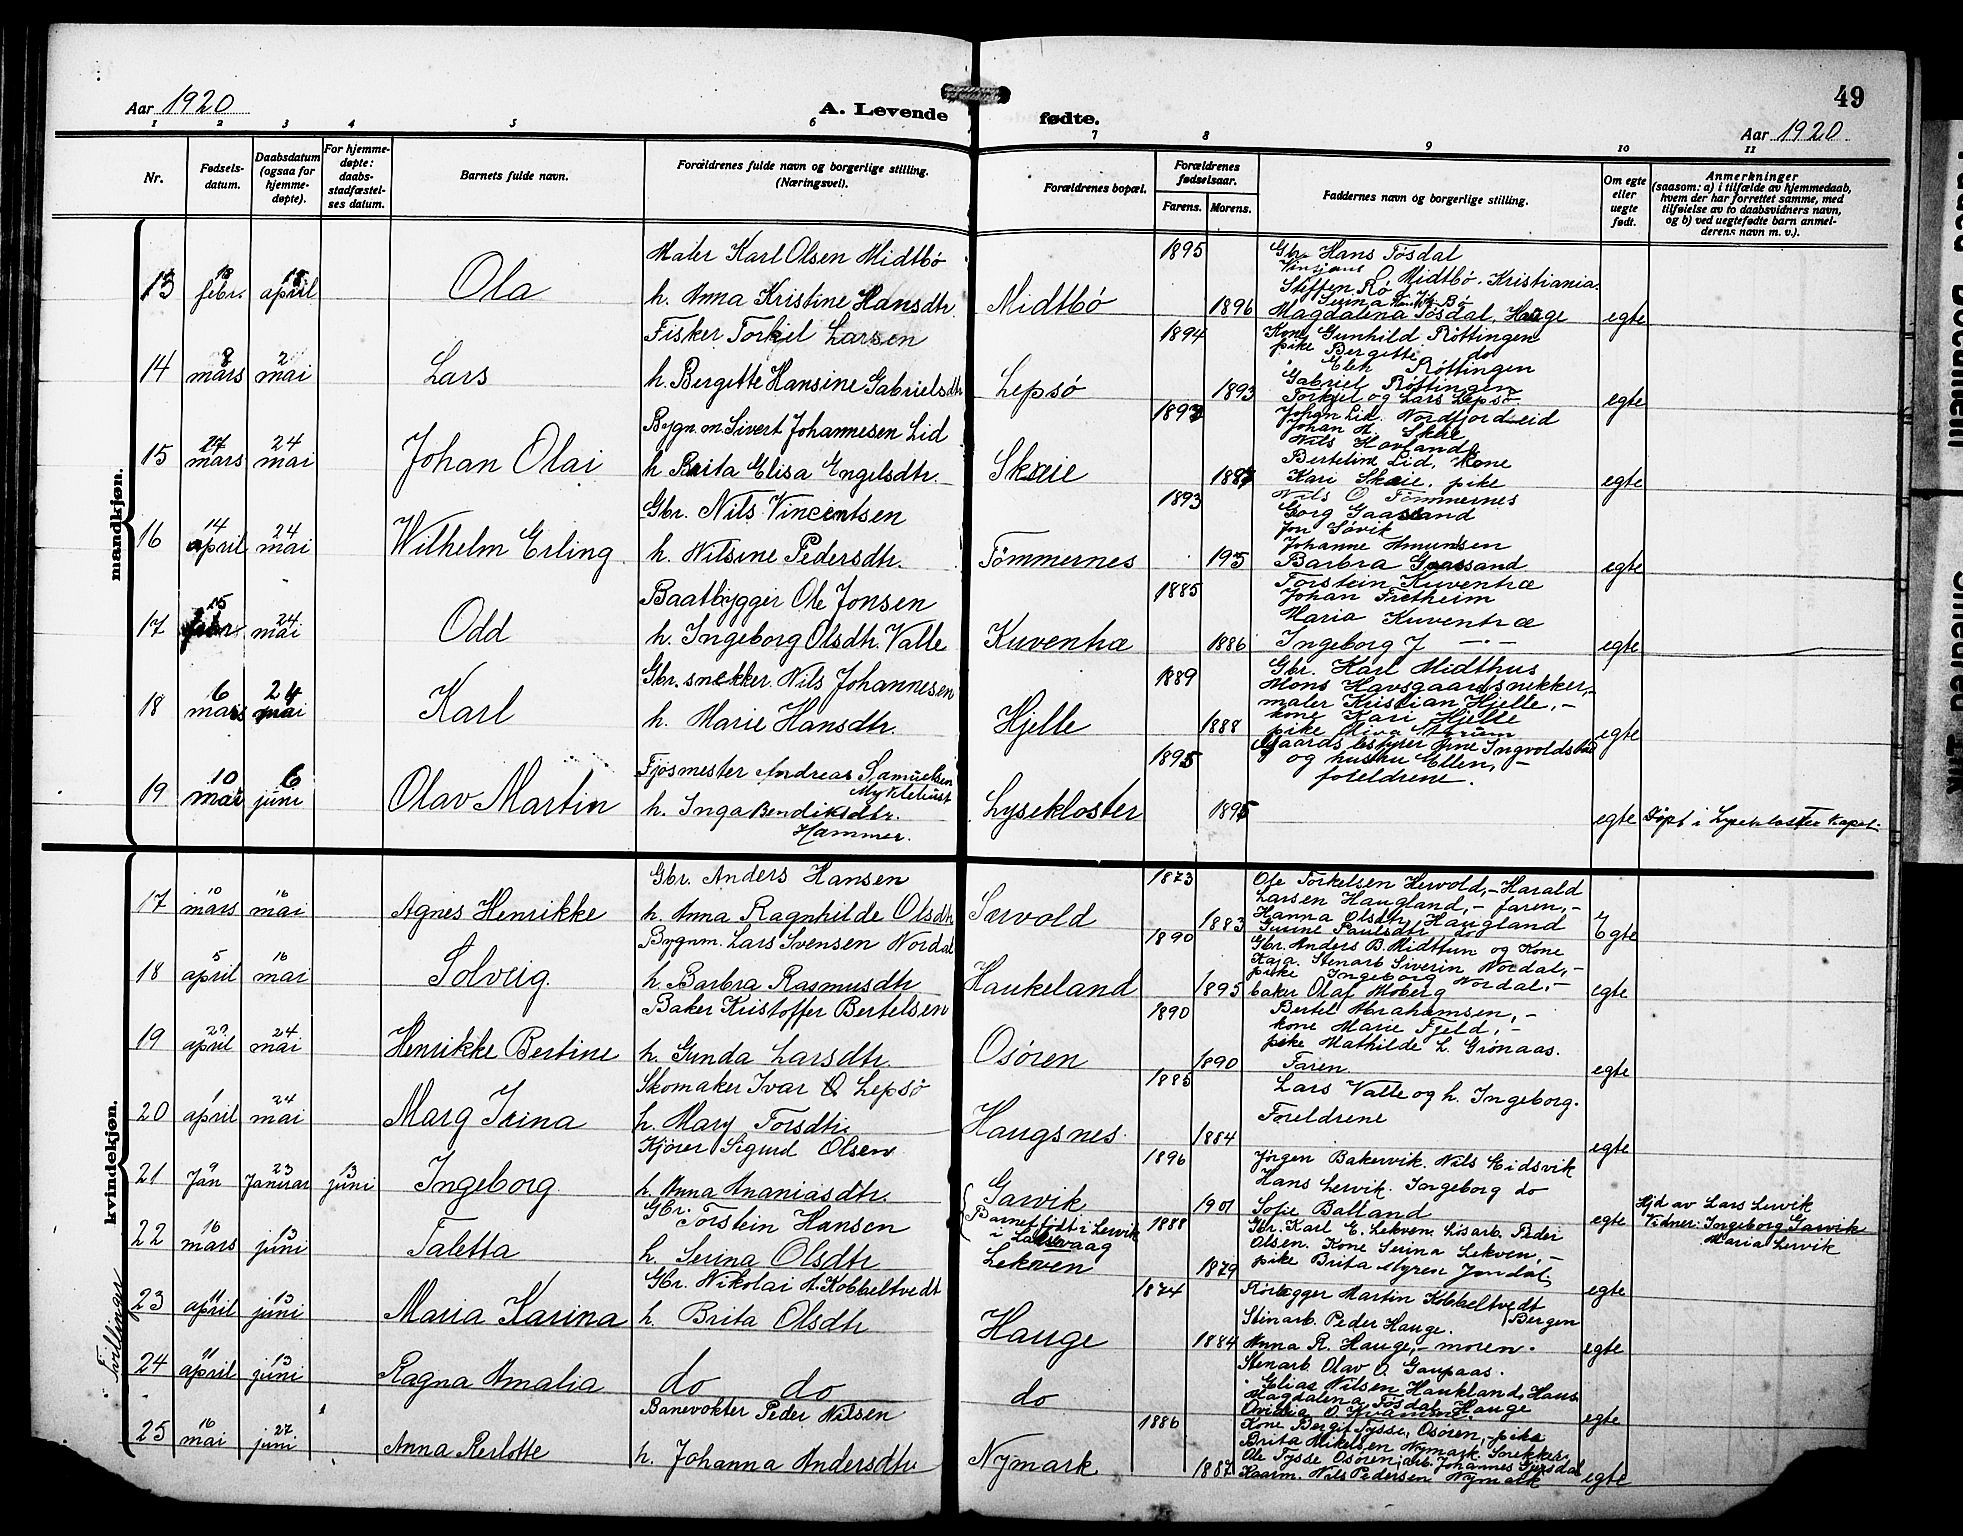 49
Aar 1920
A. Levende fødte.
Aar 1920
1 2 3 4 5 6 7 8 9 10 11
Nr.
Fødsels-
datum.
Daabsdatum
(ogsaa for
hjemme-
døpte).
For hjemme-
døpte:
daabs-
stadfæstel-
ses datum.
Barnets fulde navn.
Forældrenes fulde navn og borgerlige stilling.
(Næringsvei).
Forældrenes bopæl.
Forældrenes
fødselsaar.
Farens. Morens.
Faddernes navn og borgerlige stilling.
Om egte
eller
uegte
født.
Anmerkninger
(saasom: a) i tilfælde av hjemmedaab,
hvem der har forrettet samme, med
tilføielse av to daabsvidners navn,
og b) ved uegtefødte barn anmel-
derens navn m. v.).
mandkjøn.
13 febr. april Ola
Maler Karl Olsen Midtbø
h. Anna Kristine Hansdtr
Midtbø 1895 1896
Gbr. Hans Tøsdal
Steffen Rø Midtbø. Kristiania.
Magdalena Tøsdal, Hauge
egte
14 8 mars 2 mai Lars
Fisker Torkel Larsen
h. Bergitte Hansine Gabrielsdtr
Lepsø 1894 1893
Kone Gunhild Røttingen
pike Bergitte do
Røttingen
Gabriel Røttingen
Torkjel og Lars Lepsø
egte
15 27 mars 24 mai Johan Olai
Bygn.m Sivert Johannesen Lid
h Brita Elisa Engelsdtr.
Skeie
Johan Lid. Nordfjordeid
Johan M. Skeie
Nils Havland
Berteline Lid, Kone
Kari Skeie, pike
egte
16 14 april 24 mai Wilhelm Erling
Gbr. Nils Vincentsen
h. Nilsine Pedersdtr.
Tømmernes 1893 195
Nils O. Tømmernes
Georg Gaassand
Jon Søvik
Johanne Amundsen
Barbra Gaassand
egte
17 15 24 mai Odd
Baatbygger Ole Jonsen
h. Ingeborg Olsdtr. Valle
Kuventræ 1885 1886
Torstein Kuventræ
Johan Fretheim
Maria Kuventræ
Ingeborg J — " —
egte
18 6 mars 24 mai Karl
Gbr. snekker. Nils Johannesen
h. Marie Hansdtr.
Hjelle 1889 1888
Gbr. Karl Midthus
Mons Havsgaard snikker, -
maler Kristian Hjelle, -
kone Kari Hjelle
egte
19 10 mar 6 juni Olav Martin
Fjøsmester Andreas Samuelsen
Myklebust
h. Inga Bendiksdtr.
Hammer.
Lysekloster 1895 1895
Gaardsbestyrer Arne Ingvoldstad
og hustru Ellen, -
foreldrene.
egte
Døpt i Lysekloster Kapel.
kvindekjøn.
17 10 mars 16 mai Agnes Henrikke
Gbr. Anders Hansen
h. Anna Ragnhilde Olsdtr
Sævold 1873 1883
Ole Torkelsen Hervold, - Harald
Larsen Haugland, - faren, -
Hanna Olsdtr. Haugland
Gunne Paulsdtr do
Egte
18 5 april 16 mai Solveig
Bygnm. Lars Svensen Nordal
h. Barbra Rasmusdtr
Haukeland 1890 1895
Gbr. Anders B. Midttun og Kone
Kaja. Stenarb Siverin Nordal, -
pike Ingeborg Nordal, -
baker Olaf Moberg
egte
19 april 24 mai Henrikke Bertine
Baker Kristoffer Bertelsen
h. Gunda Larsdtr
Osøren 1890 1890
Bertel Abrahamsen, -
kone Marie Fjeld, -
pike Mathilde L. Grønaas.
Faren
egte
20 1 april 24 mai Marg Irina
Skomaker Ivar O Lepsø
h. Mary Torsdtr
Haugsnes. 1885 1884
Lars Valle og h. Ingeborg.
Foreldrene
egte
21 9 Jan 23 Januar 13 juni Ingeborg
Kjører Sigurd Olsen
h. Anna Ananiasdtr.
Gåsvik
Barnet født i Lervik
1896 1901
Jørgen Bakervik. Nils Eidsvik
Hans Lervik. Ingeborg do
Sofie Balland
egte
Hjd av Lars Lervik
Vidner: Ingeborg Gåsvik
Maria Lervik
22 16 mars 13 juni Taletta
Gbr. Torstein Hansen
h. Serina Olsdtr
Lekven 1888 1879
Gbr. Karl E. Lekven. Løsarb. Peder
Olsen. Kone Serina Lekven, -
pike Brita Styren Jondal
egte
Tvillinger
23 11 april 13 juni Maria Karina
Gbr. Nikolai A. Kobbeltvedt
h Brita Olsdtr
Hauge 1874 1884
Rørlegger Martin Kobbeltvedt
Bergen
Stinarb. Peder Hauge.
Anna R. Hauge, - moren.
egte
24 11 april 13 juni Ragna Amalia
do do
do
Stenarb. Olav O. Gaupaas.
Elias Nilsen Haukland, Haus
Magdalena Tøsdal, Hauge
egte
25 16 mai 27 juni Anna Perlotte
Banevokter Peder Nilsen
h. Johanna Andersdtr
Nymark 1886 1887
Kone Bergit Tysse, Osøren, - pike
Brita Mikelsen Nymark. Snekker
Ole Tysse Osøren, arb. Johannes
Kaarm. Nils Pedersen Nymark
egte